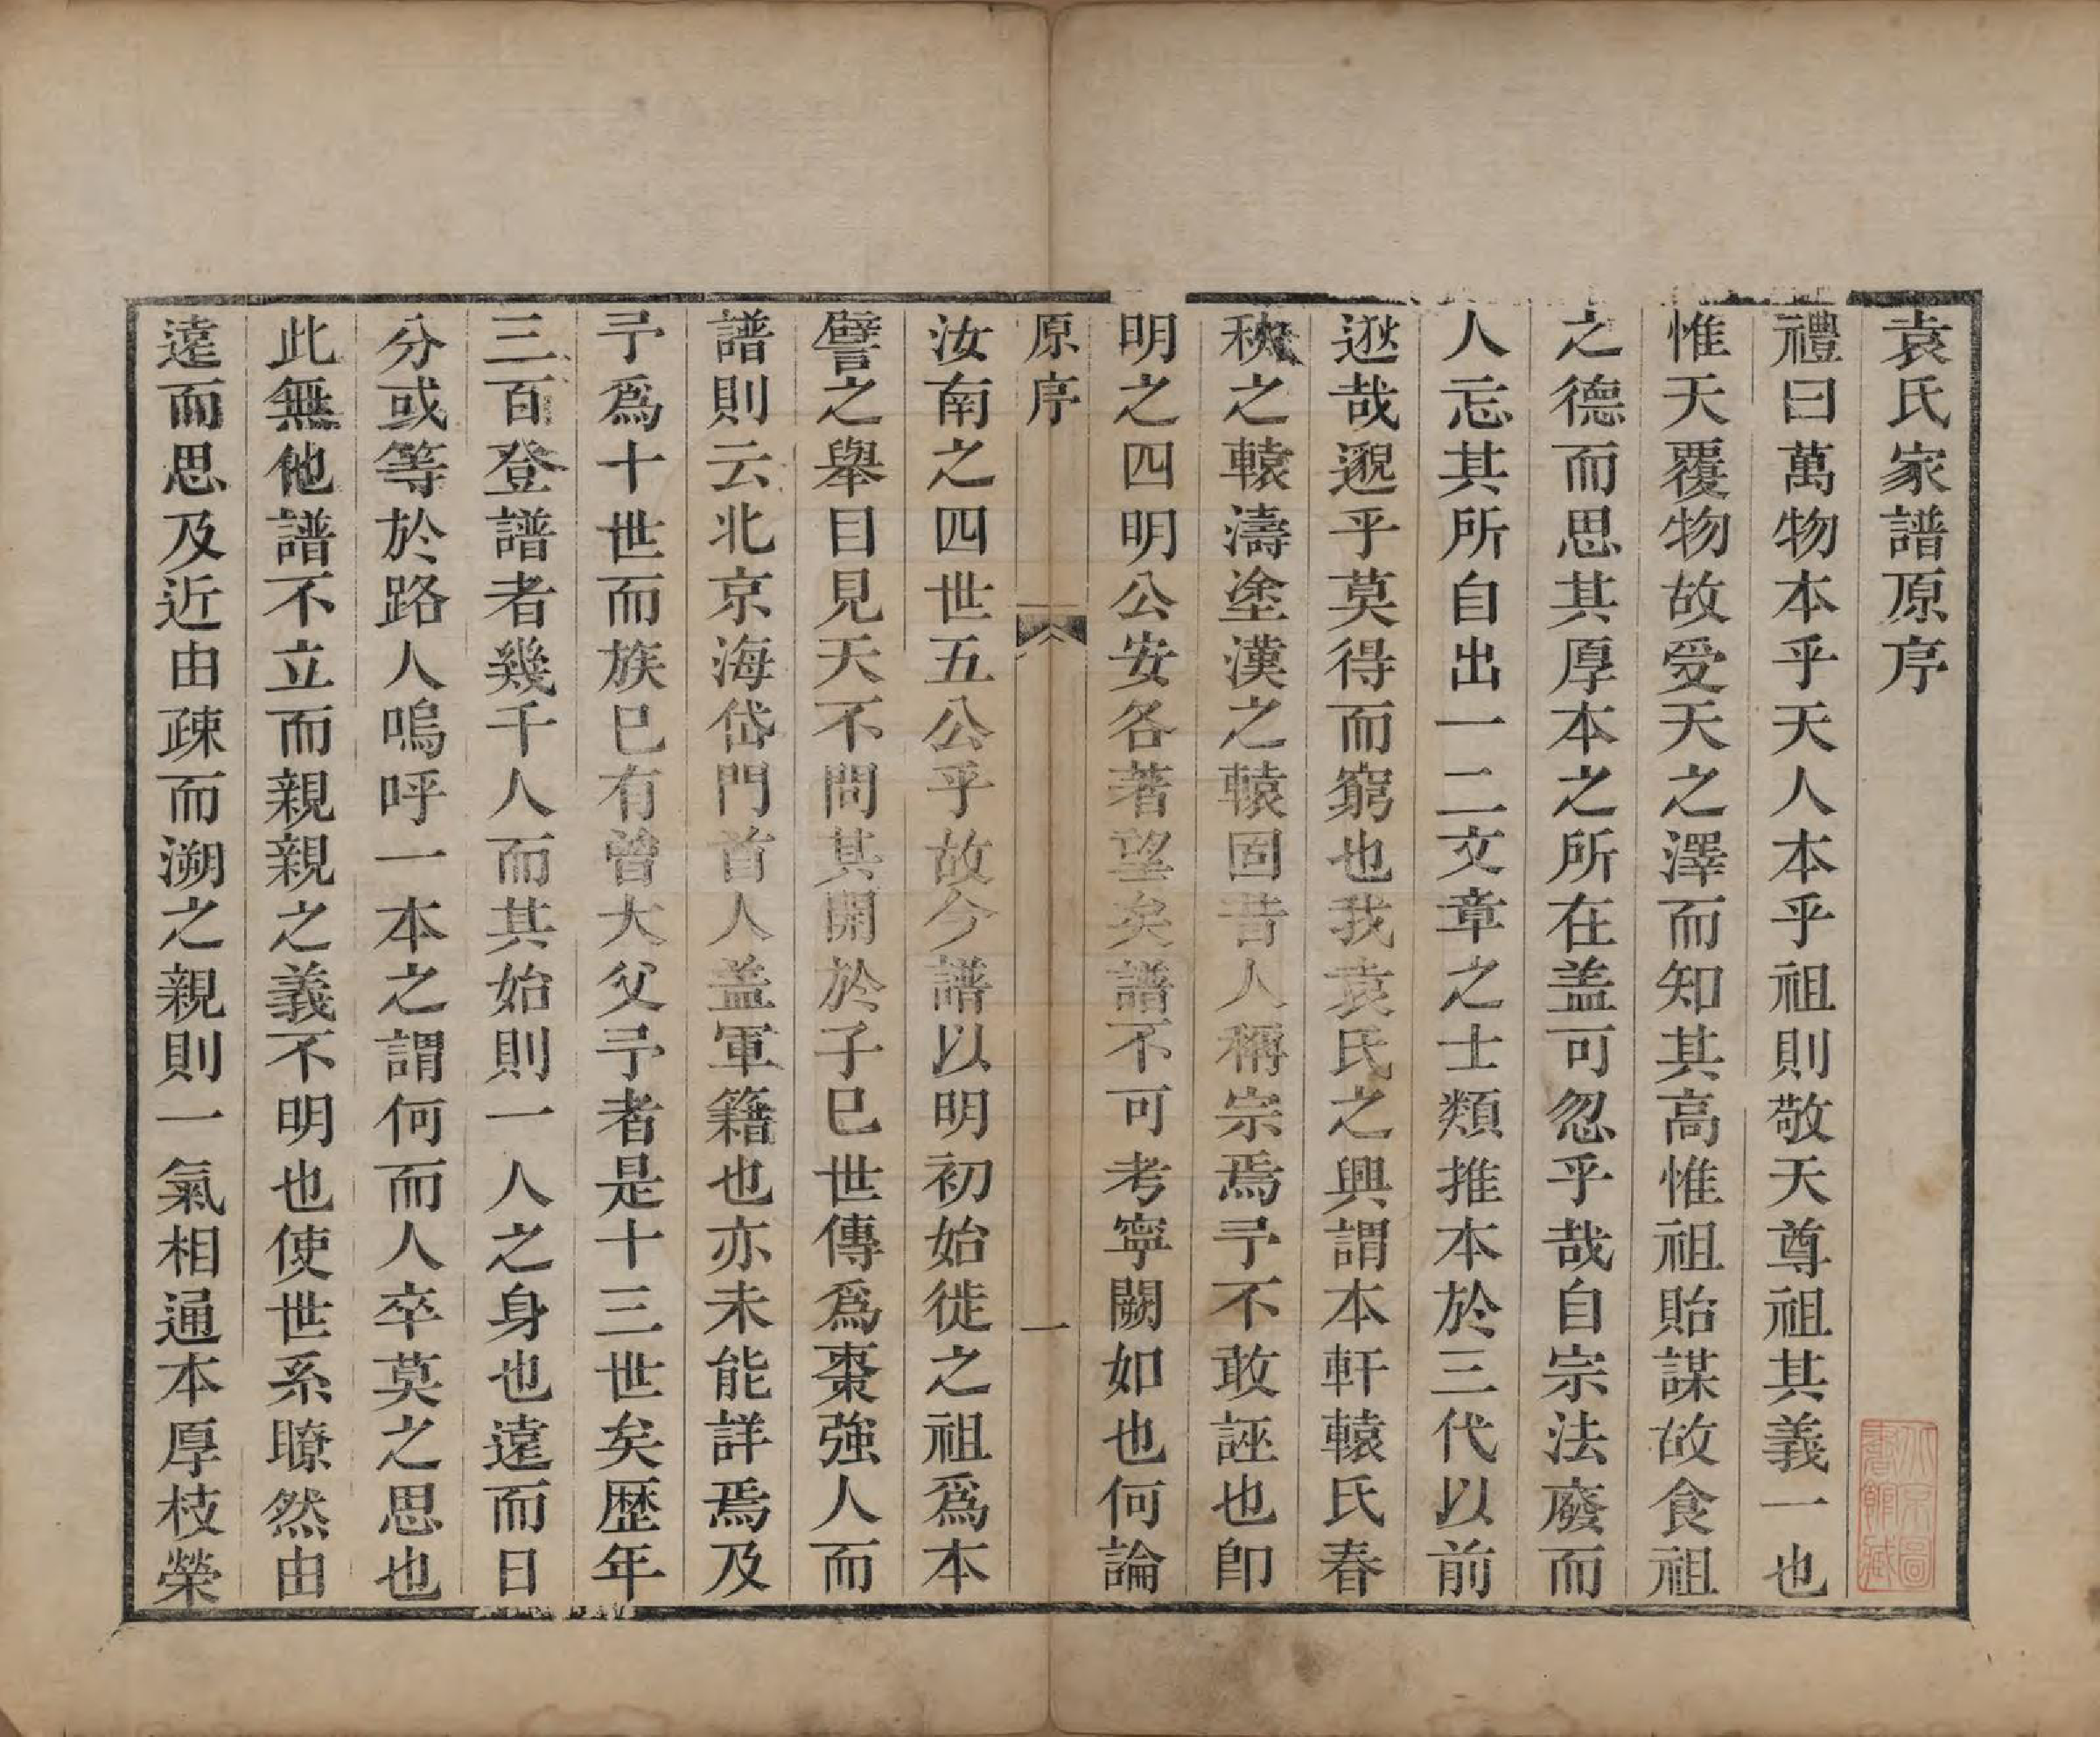 袁氏家譜原序
禮曰萬物本乎天人本乎祖則敬天尊祖其義一也
惟天覆物故受天之澤而知其高惟祖貽謀故食祖
之德而思其厚本之所在盖可忽乎哉自宗法廢而
人忘其所自出一二文章之士類推本於三代以前
逖哉邈乎莫得而窮也我袁氏之興謂本軒轅氏春
秋之轅濤塗漢之轅固昔人稱宗焉予不敢誣也卽
明之四明公安各著望矣譜不可考寧闕如也何論
原序
一
汝南之四世五公乎故今譜以明初始徙之祖爲本
譬之舉目見天不問其開於子巳世傳爲棗強人而
譜則云北京海岱門首人盖軍籍也亦未能詳焉及
予爲十世而族巳有曾大父予者是十三世矣歷年
三百登譜者幾千人而其始則一人之身也遠而日
分或等於路人嗚呼一本之謂何而人卒莫之思也
此無他譜不立而親親之義不明也使世系瞭然由
遠而思及近由疎而溯之親則一氣相通本厚枝榮